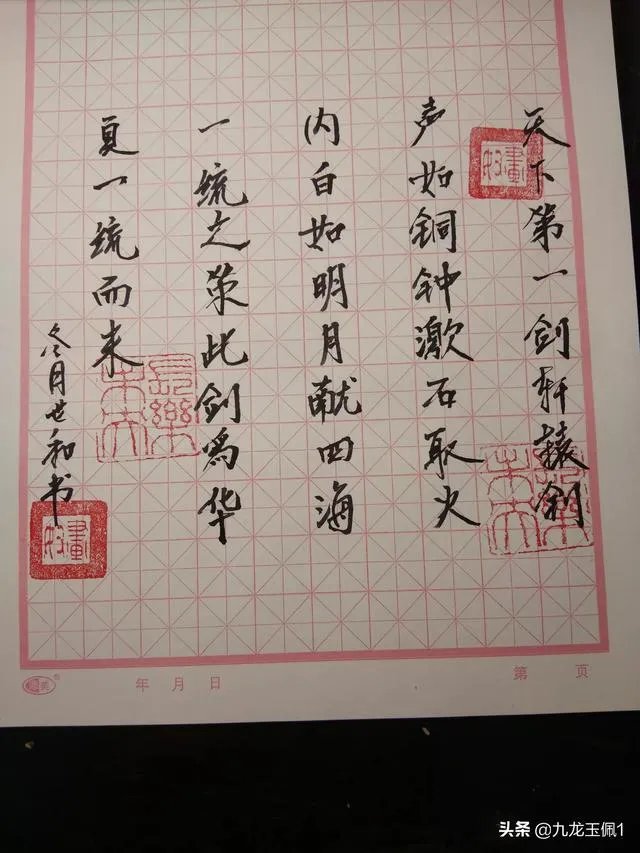 天下第一剑轩辕剑
声如铜钟激石取火
内白如明月献四海
一统之荣此剑为华
夏一统而来
冬月世和书
年 月 日
第 页
头条 @九龙玉佩1